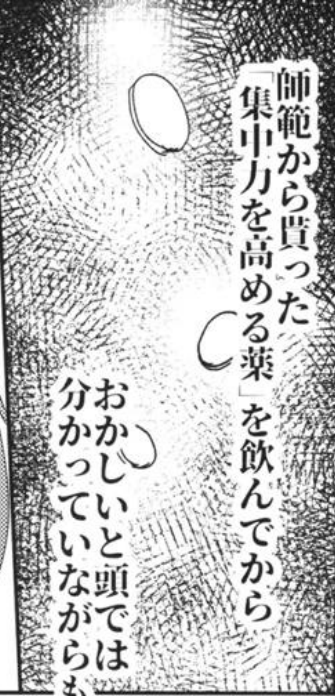 師範から貰った
「集中力を高める薬」を飲んでから
おかしいと頭では
分かっていながらも